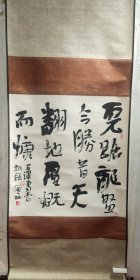 虎踞龍盤
今勝昔天
翻地覆慨
而慷